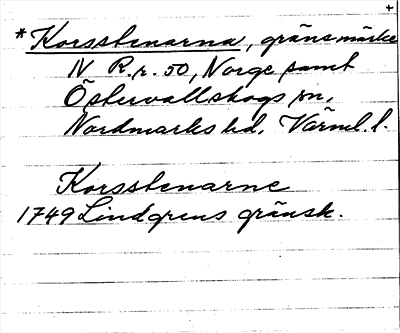 +
*Korsstenarna, gränsmärke
N R.r. 50, Norge samt
Östervallskogs sn,
Nordmarks hd, Värml. l.
Korsstenarne
1749 Lindgrens gränsk.